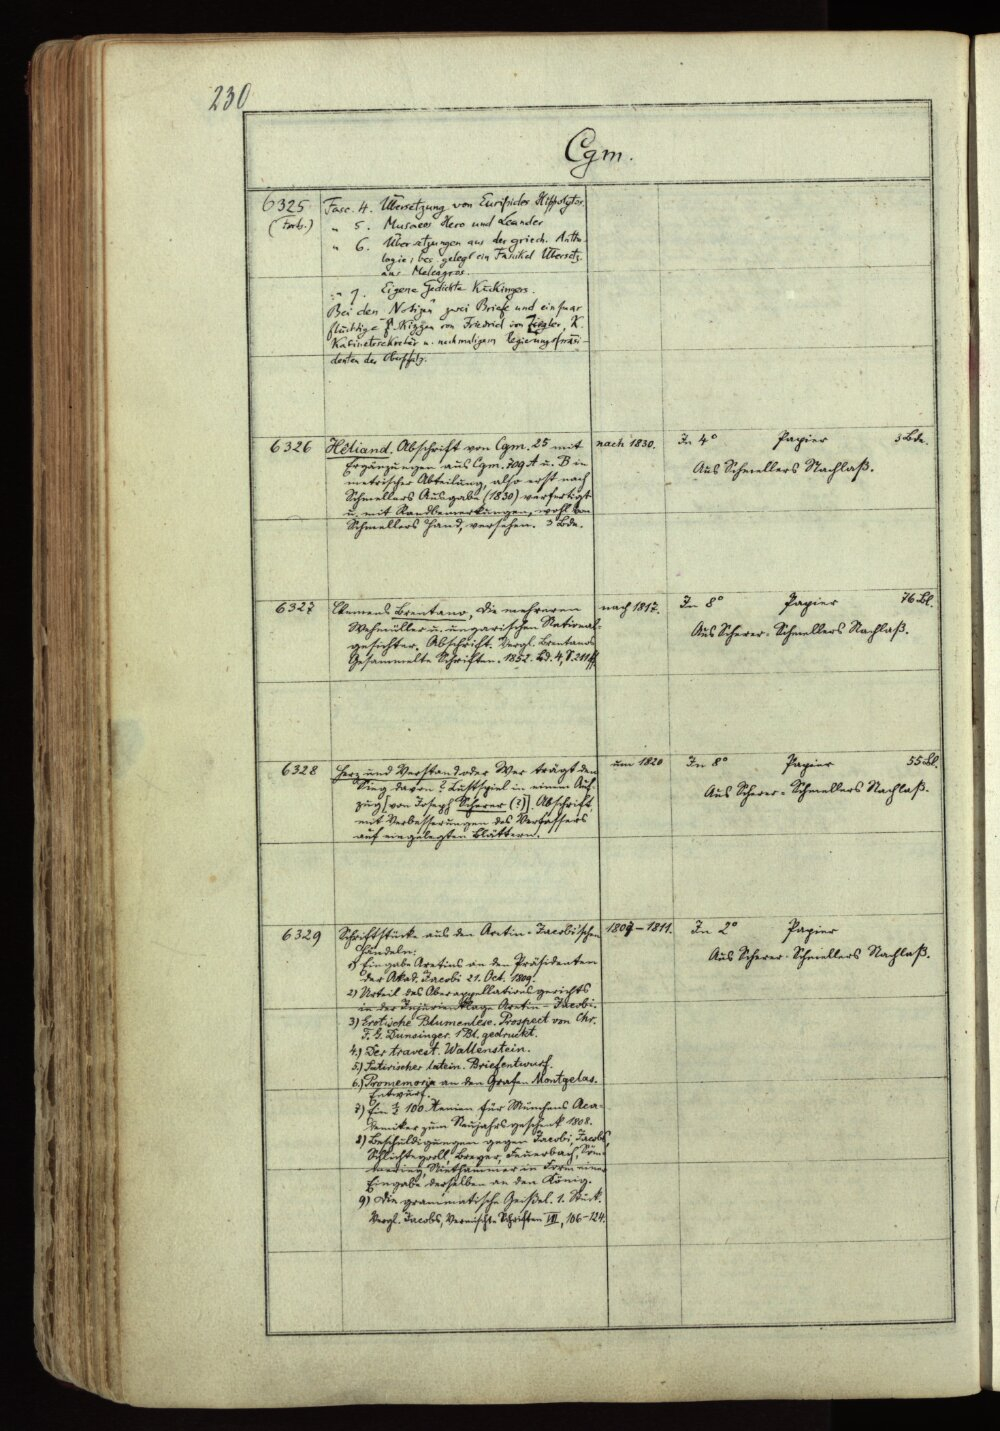 230
Cgm.
6325 Fasc. 4. Übersetzung von Euripides Hippolytos
(Forts.) " 5. Musaeos Hero und Leander
" 6. Übersetzungen aus der griech. Antho-
logie; bes. gelegt ein Faszikel Übersetz.
aus Meleagros.
" 7. Eigene Gedichte
Bei den Notizen zwei Briefe und ein paar
flüchtige Skizzen von Friedrich von Ziegler, K.
Kabinetssekretär u. nachmaligem Regierungspräsi-
denten der Oberpfalz.
6326 Hêliand. Abschrift von Cgm. 25 mit nach 1830. In 4° Papier 3 Bde.
Ergänzungen aus Cgm. 709 A u. B in Aus Schmellers Nachlaß.
metrischer Abteilung, also erst nach
Schmellers Ausgabe (1830) verfertigt
u. mit Randbemerkungen, wohl von
Schmellers Hand, versehen. 3 Bde.
6327 Clemens Brentano, Die mehreren nach 1817. In 8° Papier 76 Bl.
Wehmüller u. ungarischen National- Aus Scherer-Schmellers Nachlaß.
gesichter. Abschrift. Vergl. Brentanos
Gesammelte Schriften. 1852. Bd. 4, S. 211 ff.
6328 Herz und Verstand oder Wer trägt den um 1820 In 8° Papier 55 Bl.
Sieg davon? Lustspiel in einem Auf- Aus Scherer-Schmellers Nachlaß.
zug [von Joseph Scherer (?)]. Abschrift,
mit Verbesserungen des Verfassers
auf eingelegten Blättern.
6329 Schriftstücke aus den Aretin-Jacobischen 1807–1811. In 2° Papier
Händeln: Aus Scherer-Schmellers Nachlaß.
1) Eingabe Aretins an den Präsidenten
der Akad. Jacobi 21. Oct. 1809.
2) Urteil des Oberappellationsgerichts
in der Injurienklage Aretin – Jacobi.
3) Erotische Blumenlese. Prospect von Chr.
F. G. Dunsinger. 1 Bl. gedruckt.
4.) Der travest. Wallenstein.
5.) Satirischer latein. Briefentwurf.
6.) Promemoria an den Grafen Montgelas.
Entwurf.
7) Ein 100 Xenien für Münchens Aca-
demiker zum Neujahrsgeschenk 1808.
8) Beschuldigungen gegen Jacobi, Jacobs,
Schlichtegroll, Breyer, Feuerbach, Söm-
mering, Niethammer in Form einer
Eingabe derselben an den König.
9) Die grammatische Geißel. 1. Stück.
Vergl. Jacobs, Vermischte Schriften VII, 106–124.